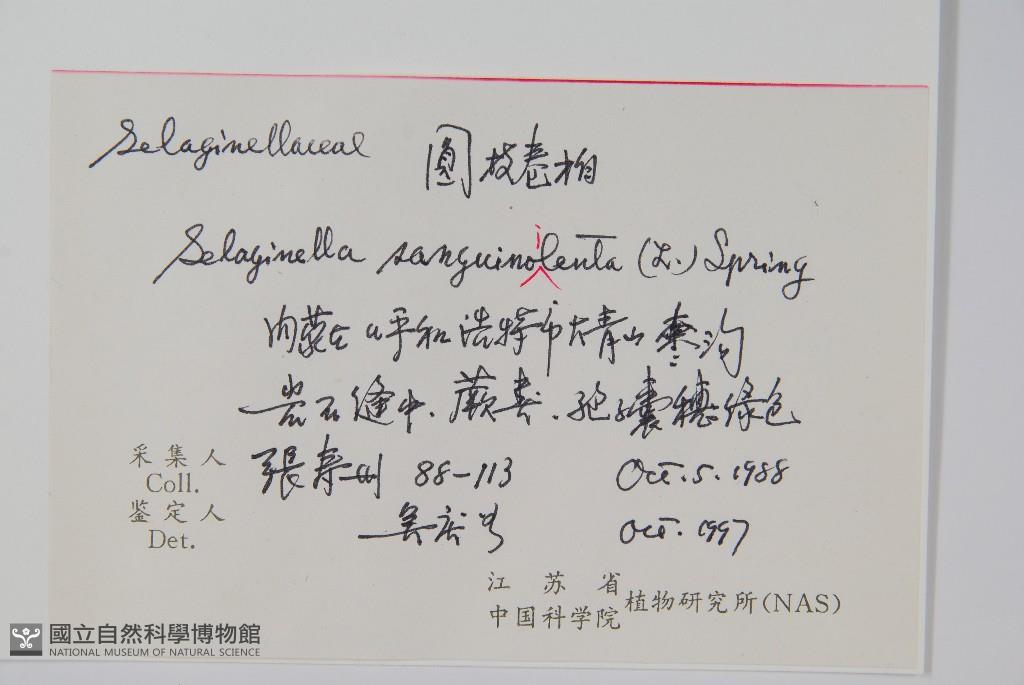 Selaginellaceae 圓枝卷柏
Selaginella sanguinolenta (L.) Spring
i
內蒙古呼和浩特市大青山寒沟
岩石缝中、蕨类、孢子囊穗绿色
采集人 張寿州 88-113 Oct. 5. 1988
Coll.
鉴定人
Det. Oct. 1997
江苏省
中国科学院 植物研究所(NAS)
國立自然科學博物館
NATIONAL MUSEUM OF NATURAL SCIENCE